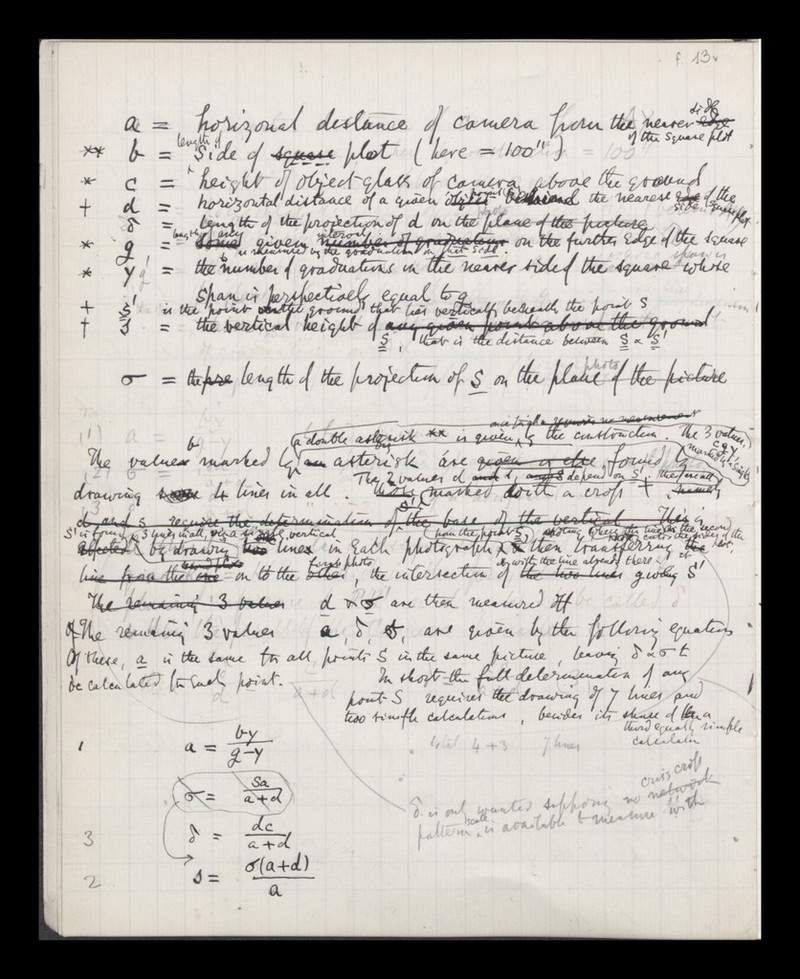 f. 13v
a = horizonal distance of camera from the nearer side edge
of the square plot
** b = length of side of square plot (here = 100")
* c = height of object glass of camera above the ground
† d = horizontal distance of a given point behind the nearest edge side of the square plot
δ = length of the projection of d on the plane of the picture
* g = length of any given interval number of graduations on the further edge of the square
is measured by the graduations on that side.
* γ = the number of graduations in the nearer side of the square whose
span is perspectively equal to g
† S' is the point on the ground that lies vertically beneath the point S
† s = the vertical height of any given point above the ground
S, that is the distance between S & S'
σ = the length of the projection of S on the plane of the picture
photo
(1)
a double asterisk ** is given by the construction. The 3 values,
c g γ,
The values marked by an asterisk are given or else found by
marked with a single
drawing 4 lines in all. The 2 values d, s depend on S', these really
marked with a cross †
d and s require the determination of the base of the vertical. This is
S' is found by 3 lines in all, viz a single vertical
effected by drawing two lines in each photograph & then transferring the
line from the one on to the other, the intersection of the two lines giving S'
photo
with the line already there
The remaining 3 values d & σ are then measured off
Of the remaining 3 values a, δ, s, are given by the following equations
Of these, a is the same for all points S in the same picture, leaving δ & σ to
be calculated for each point. In short the full determination of any
point S requires the drawing of 7 lines and
two simple calculations, besides its share of a
third equally simple
calculation
total 4 + 3 7 lines
1 a = bγ / g-γ
σ = sa / a+d
3 δ = dc / a+d
2 s = σ(a+d) / a
δ is only wanted supposing no network criss cross
pattern scale is available to measure it with